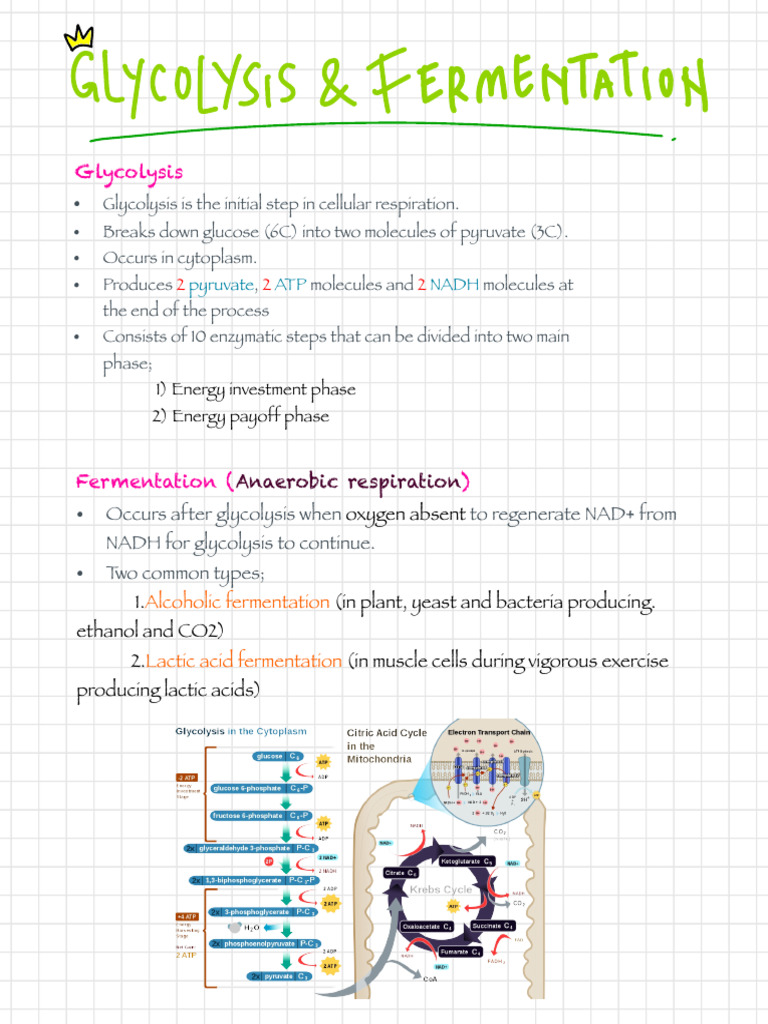 GLYCOLYSIS & FERMENTATION
Glycolysis
• Glycolysis is the initial step in cellular respiration.
• Breaks down glucose (6C) into two molecules of pyruvate (3C).
• Occurs in cytoplasm.
• Produces 2 pyruvate, 2 ATP molecules and 2 NADH molecules at
the end of the process
• Consists of 10 enzymatic steps that can be divided into two main
phase;
1) Energy investment phase
2) Energy payoff phase
Fermentation (Anaerobic respiration)
• Occurs after glycolysis when oxygen absent to regenerate NAD+ from
NADH for glycolysis to continue.
• Two common types;
1.Alcoholic fermentation (in plant, yeast and bacteria producing.
ethanol and CO2)
2.Lactic acid fermentation (in muscle cells during vigorous exercise
producing lactic acids)
Glycolysis in the Cytoplasm
glucose C6
ATP
ADP
-2 ATP
Energy
Investment
Stage
glucose 6-phosphate C6-P
fructose 6-phosphate C6-P
ATP
ADP
2x glyceraldehyde 3-phosphate P-C3
2P
2 NAD+
2 NADH
2x 1,3-biphosphoglycerate P-C3-P
2 ADP
2 ATP
2x 3-phosphoglycerate P-C3
+4 ATP
Energy
Harvesting
Stage
Net Gain:
2 ATP
H2O
2x phosphoenolpyruvate P-C3
2 ADP
2 ATP
2x pyruvate C3
Citric Acid Cycle
in the
Mitochondria
Electron Transport Chain
CO2
NADH
NAD+
Ketoglutarate C5
Citrate C6
NAD+
Krebs Cycle
NADH
CO2
ATP
Oxaloacetate C4
Succinate C4
FAD
Fumarate C4
FADH2
NADH
NAD+
CoA